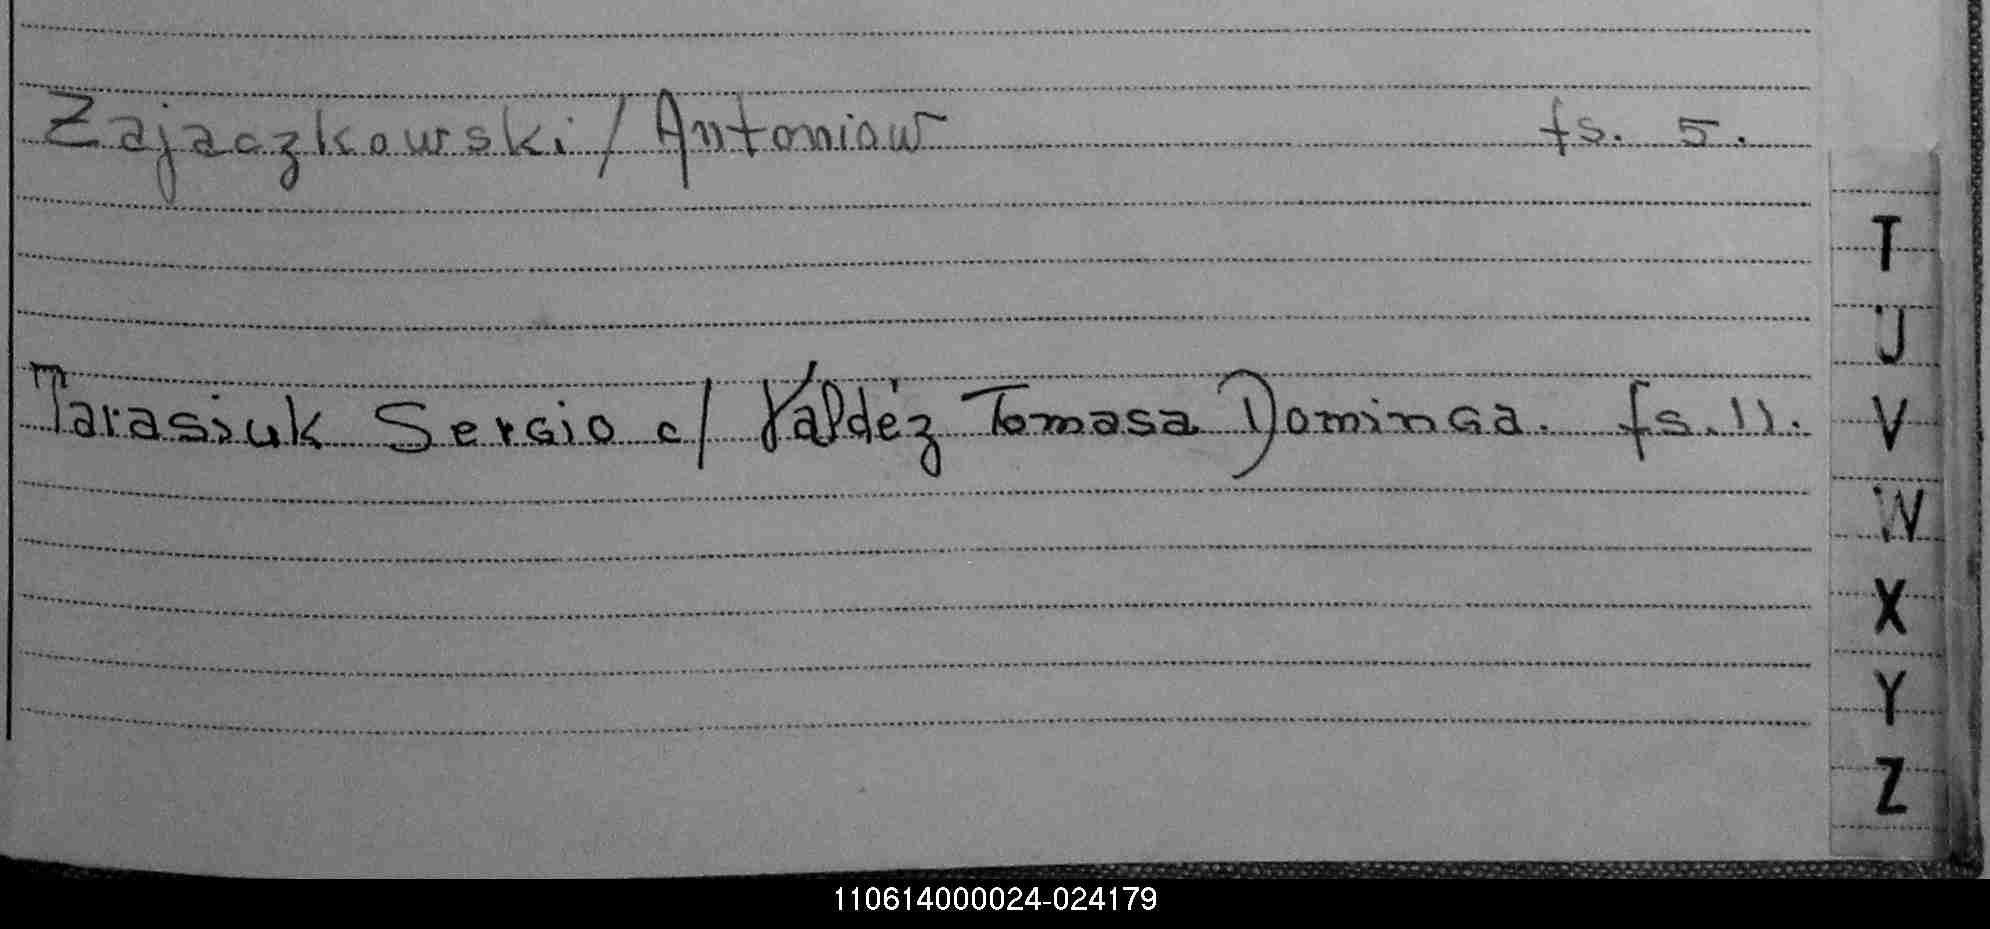 Zajaczkowski / Antoniow fs. 5.
T
U
Tarasiuk Sergio c/ Valdéz Tomasa Dominga. fs. 11.
V
W
X
Y
Z
110614000024-024179